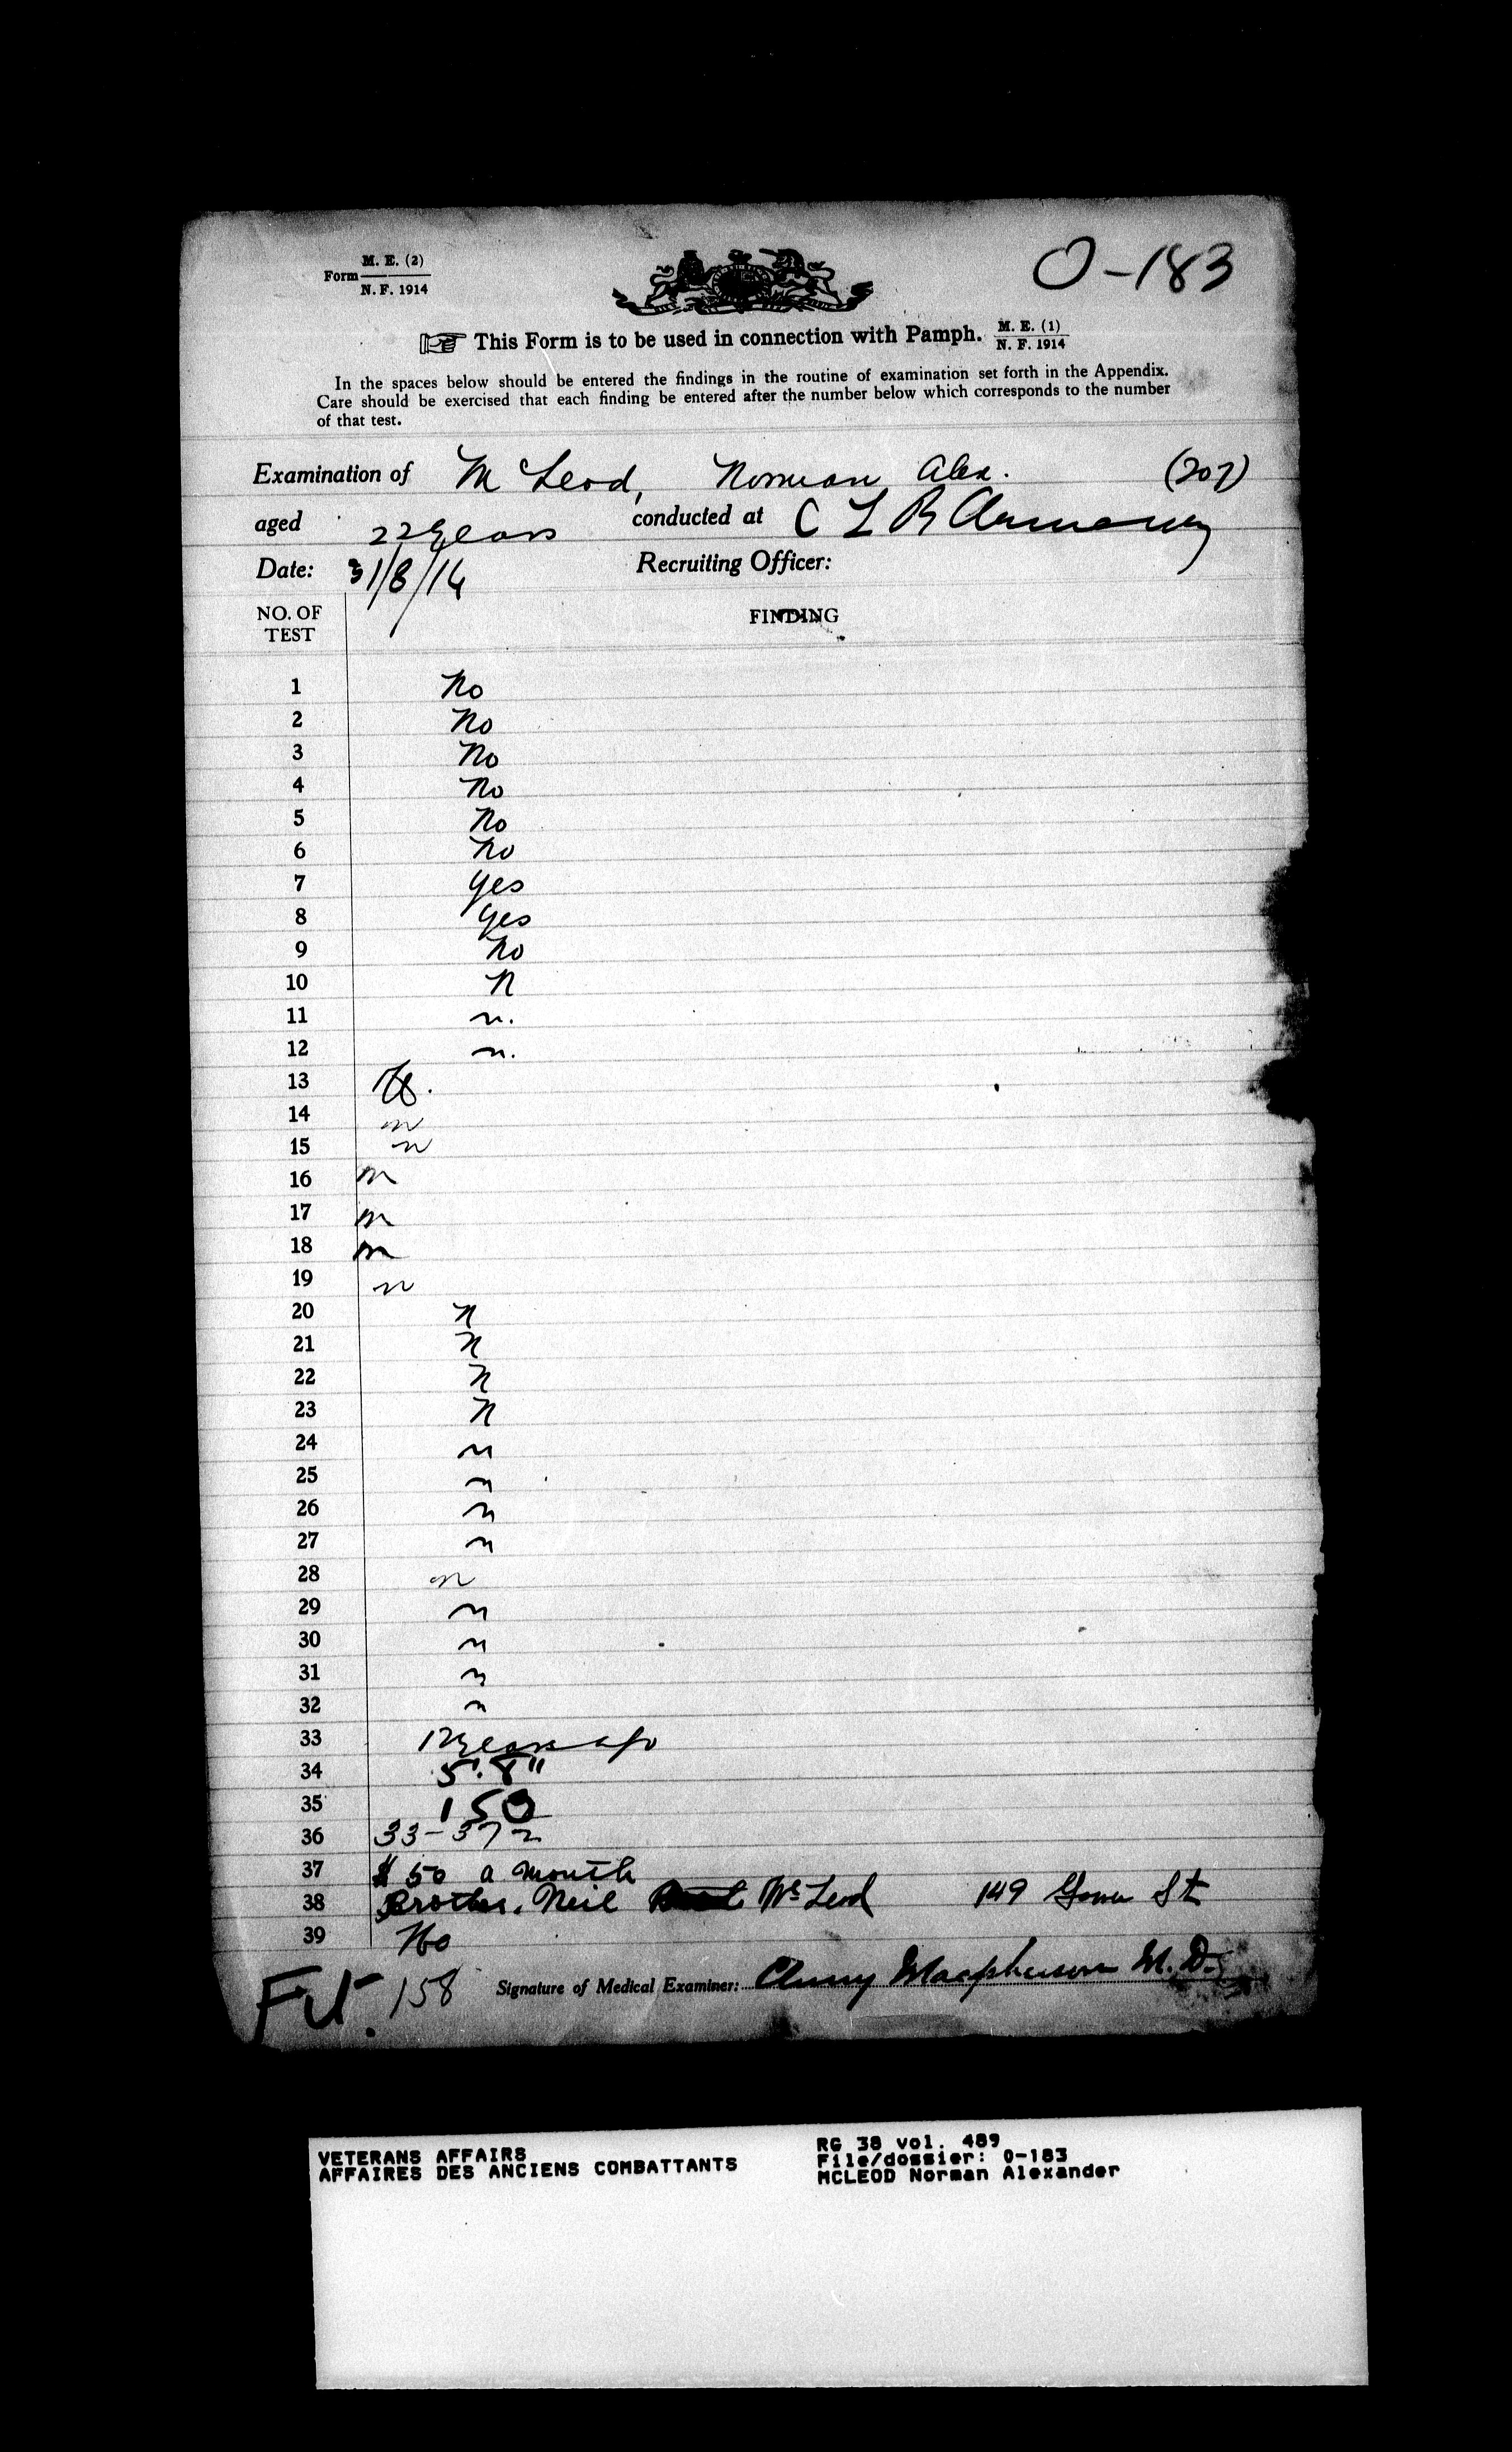 M. E. (2)
Form
N. F. 1914
O-183
This Form is to be used in connection with Pamph. M. E. (1)
N. F. 1914
In the spaces below should be entered the findings in the routine of examination set forth in the Appendix.
Care should be exercised that each finding be entered after the number below which corresponds to the number
of that test.
Examination of McLeod, Norman Alex. (207)
aged 22 years conducted at C L B Armoury
Date: 31/8/14 Recruiting Officer:
NO. OF TEST FINDING
1 No
2 No
3 No
4 No
5 No
6 No
7 yes
8 yes
9 No
10 N
11 n.
12 n.
13
14 n
15 n
16 n
17 n
18 n
19 n
20 N
21 N
22 N
23 N
24 n
25 n
26 n
27 n
28 n
29 n
30 n
31 n
32 n
33 12 years ago
34 5'.8"
35 150
36 33-37
37 $50 a month
38 Brother, Neil McLeod 149 Gower St
39 No
Fit. 158 Signature of Medical Examiner: Cluny Macpherson M.D.
VETERANS AFFAIRS
AFFAIRES DES ANCIENS COMBATTANTS
RG 38 vol. 489
File/dossier: O-183
MCLEOD Norman Alexander